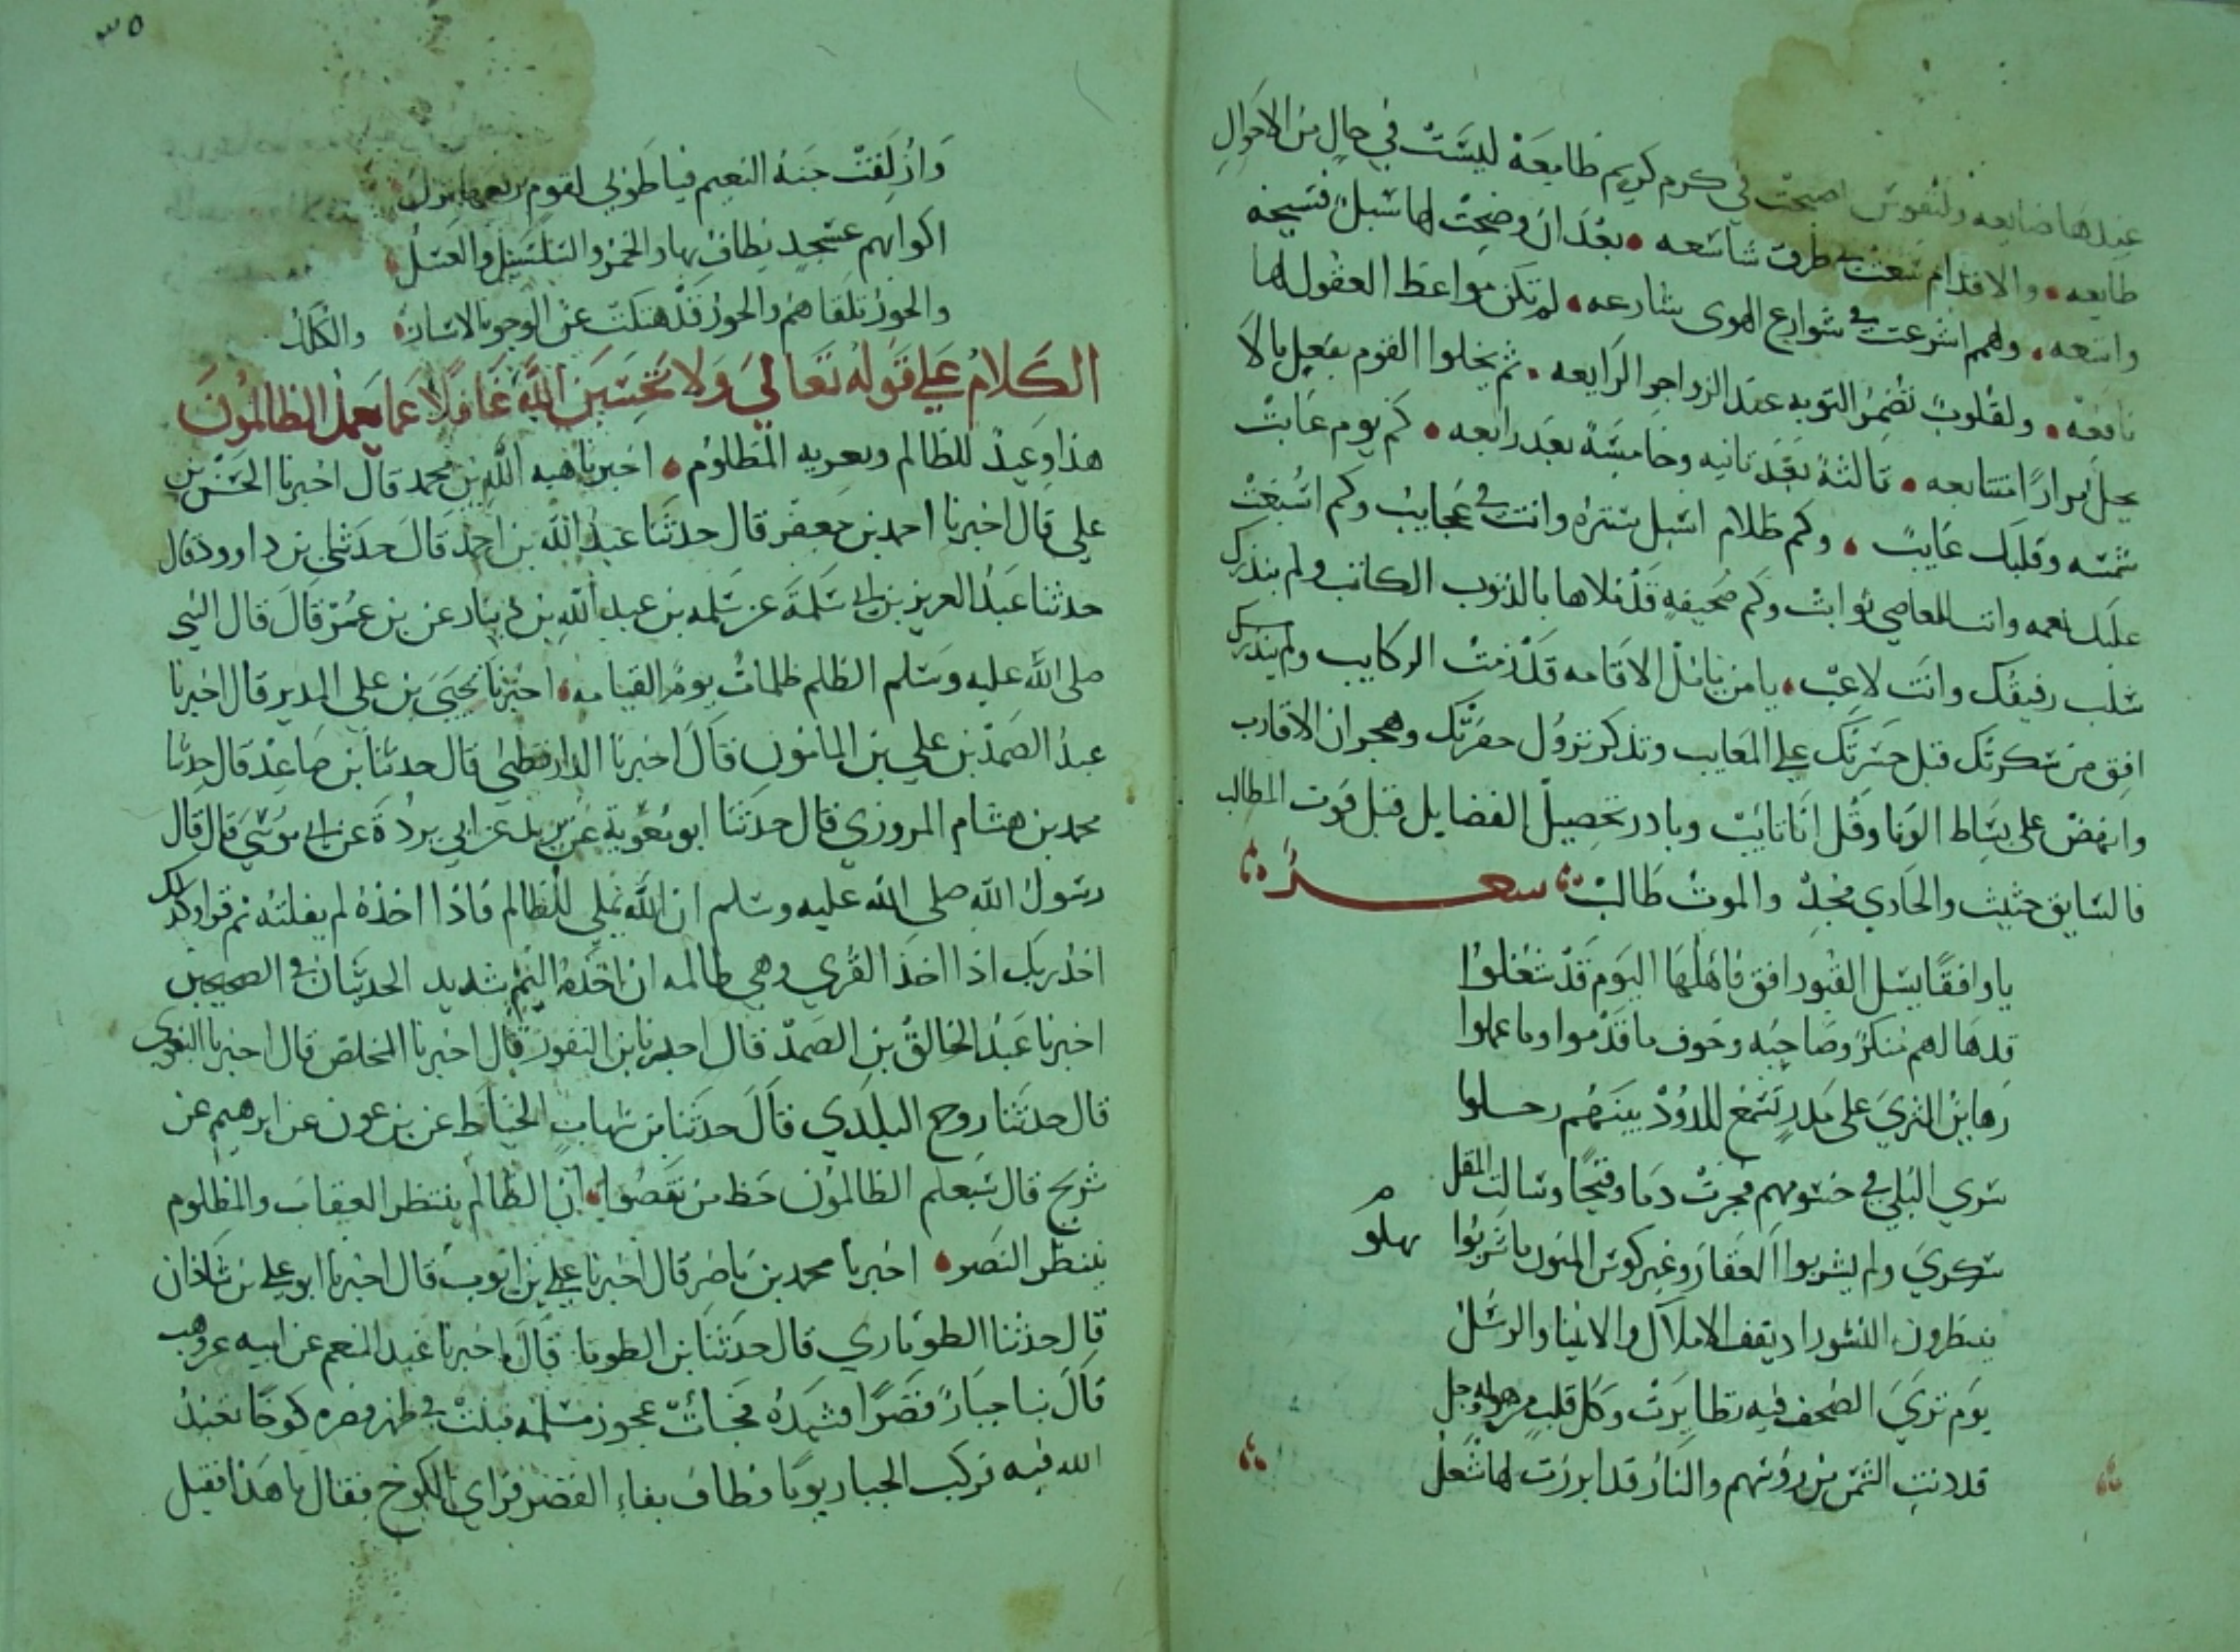 عندها ضايعه ولنفوس اصبحت في كرم كريم طامعة ليست في حال من الاحوال
طايعه • والاقدام سعت في طرق شاسعه • بعد ان وضحت لها سبل فسيحه
واسعه • ولهمم اشرعت في شوارع الهوى شارعه • لم تكن مواعظ العقول لها
نافعه • ولقلوب تضمر التوبه عند الزواجر الرايعه • ثم يخلوا القوم بفعل ما لا
يحل مرارا متتابعه • ثالثة بعد ثانيه وخامسة بعد رابعه • كم يوم غابت
شمسه وقلبك غايب • وكم ظلام اسبل ستره وانت في عجايب وكم اسبغت
عليك نعمه وانت للمعاصي تواثب وكم صحيفة قد ملاها بالذنوب الكاتب ولم ينذرك
سلب رفيقك وانت لاعب • يا من يامل الاقامه قد زمت الركايب
افق من سكرتك قبل حسرتك على المعايب وتذكر نزول حفرتك وهجران الاقارب
وانهض على بساط الونا وقل انا تايب وبادر تحصيل الفضايل قبل فوت المطالب
فالسايق حثيث والحادي مجد والموت طالب شعر
يا واقفا يسل القبور افق فاهلها اليوم قد شغلوا
قد هالهم منكر وصاحبه وخوف ما قدموا وما عملوا
رهاين الثرى على مدر تسمع للدود بينهم رحلوا
سرى البلى في جسومهم فجرت دما وقيحا وسالت المقل
سكرى ولم يشربوا العقار وغير كوس المنون ما شربوا نهلو
ينتظرون النشور اذ يقف الاملاك والانبيا والرسل
يوم ترى الصحف فيه تطايرت وكل قلب من هوله وجل
قد دنت الشمس من روسهم والنار قد ابرزت لها شعل
٣٥
وازلفت جنة النعيم فيا طوبى لقوم بربعها نزلوا
اكوابهم عسجد يطاف بها والخمر والسلسبيل والعسل
والحور تلقاهم والحور قد هتكت عن الوجوه الاستار والكلل
الكلام على قوله تعالى ولا تحسبن الله غافلا عما يعمل الظالمون
هذا وعيد للظالم وتعزيه للمظلوم • اخبرنا هبه الله بن محمد قال اخبرنا الحسن بن
علي قال اخبرنا احمد بن جعفر قال حدثنا عبد الله بن احمد قال حدثني بن داوود قال
حدثنا عبد العزيز بن ابي سلمة عن سلمه بن عبد الله بن دينار عن بن عمر قال قال النبي
صلى الله عليه وسلم الظلم ظلمات يوم القيامه • اخبرنا يحيى بن علي المدير قال اخبرنا
عبد الصمد بن علي بن المامون قال اخبرنا الدارقطني قال حدثنا بن صاعد قال حدثنا
محمد بن هشام المروزي قال حدثنا ابو معوية عن بريد عن ابي بردة عن ابي موسى قال قال
رسول الله صلى الله عليه وسلم ان الله يملي للظالم فاذا اخذه لم يفلته ثم قرا وكذلك
اخذ ربك اذا اخذ القرى وهي ظالمه ان اخذه اليم شديد الحديثان في الصحيحين
اخبرنا عبد الخالق بن الصمد قال اخبرنا بن النقور قال اخبرنا المخلص قال اخبرنا البغوي
قال حدثنا روح البلدي قال حدثنا بن شهاب الخياط عن بن عون عن ابرهيم عن
شريح قال سيعلم الظالمون حظ من نقصوا • ان الظالم ينتظر العقاب والمظلوم
ينتظر النصر • اخبرنا محمد بن ناصر قال اخبرنا علي بن ايوب قال اخبرنا ابو علي بن شاذان
قال حدثنا الطوماري قال حدثنا قال اخبرنا عبد المنعم عن ابيه عن وهب
قال بنا جبار قصرا فشيده فجائت عجوز مسلمه فبنت في ظهر قصره كوخا تعبد
الله فيه فركب الجبار يوما فطاف بفناء القصر فراى الكوخ فقال ما هذا فقيل